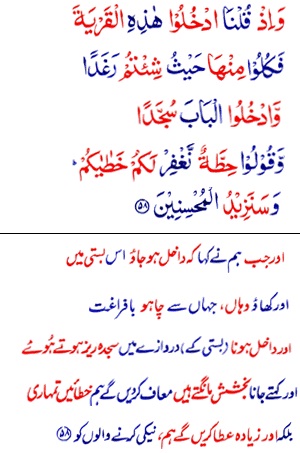 وَاِذْ قُلْنَا ادْخُلُوْا هٰذِهِ الْقَرْيَةَ
فَكُلُوْا مِنْهَا حَيْثُ شِئْتُمْ رَغَدًا
وَّادْخُلُوا الْبَابَ سُجَّدًا
وَّقُوْلُوْا حِطَّةٌ نَّغْفِرْ لَكُمْ خَطٰيٰكُمْ ؕ
وَسَنَزِيْدُ الْمُحْسِنِيْنَ ﴿۵۸﴾
اور جب ہم نے کہا کہ داخل ہو جاؤ اس بستی میں
اور کھاؤ وہاں، جہاں سے چاہو بافراغت
اور داخل ہونا (بستی کے) دروازے میں سجدہ ریز ہوتے ہوئے
اور کہتے جانا بخشش مانگتے ہیں معاف کردیں گے ہم خطائیں تمہاری
بلکہ اور زیادہ عطا کریں گے ہم، نیکی کرنے والوں کو ﴿۵۸﴾